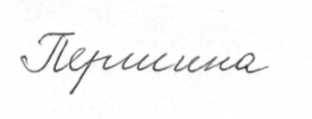 Першина